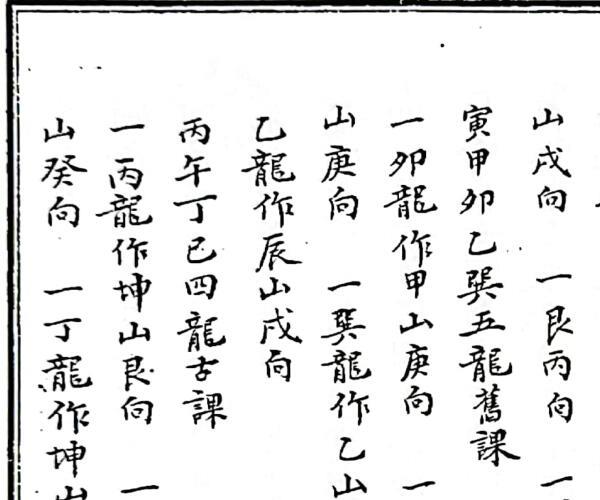 山戌向　一艮丙向　一
寅甲卯乙巽五龍舊課
一卯龍作甲山庚向　一
山庚向　一巽龍作乙山
乙龍作辰山戌向
丙午丁巳四龍古課
一丙龍作坤山艮向　一
山癸向　一丁龍作坤山